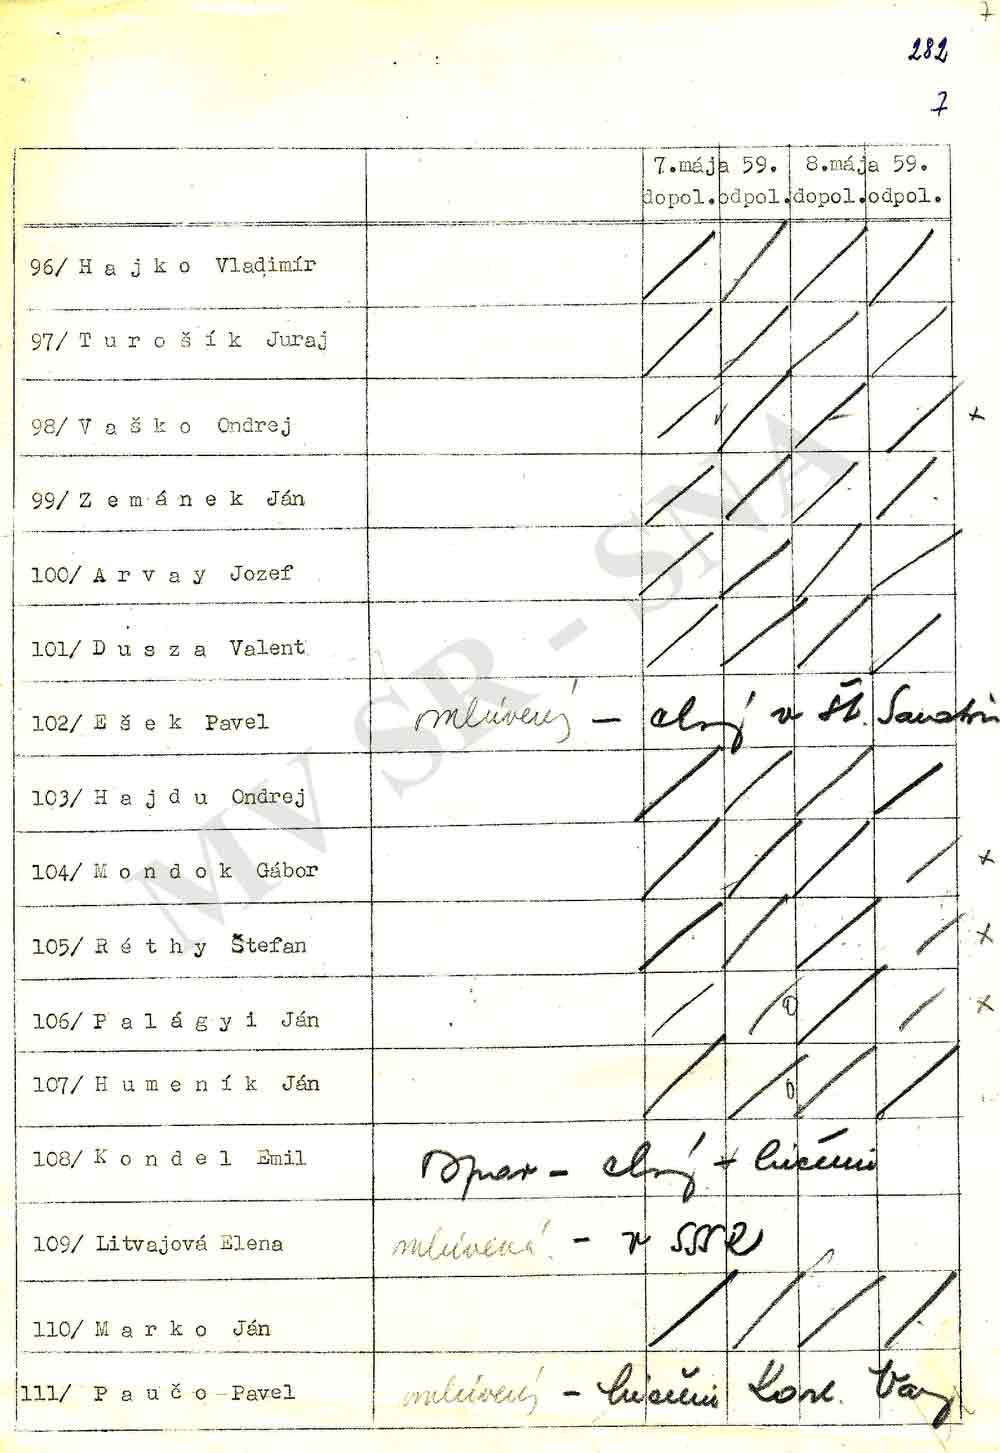 7
282
7
7.mája 59. 8.mája 59.
dopol. odpol. dopol. odpol.
96/ H a j k o Vladimír
97/ T u r o š í k Juraj
98/ V a š k o Ondrej +
99/ Z e m á n e k Ján
100/ A r v a y Jozef
101/ D u s z a Valent
102/ E š e k Pavel mluvený - chorý v Št.
103/ H a j d u Ondrej
104/ M o n d o k Gábor +
105/ R é t h y Štefan +
106/ P a l á g y i Ján 0 +
107/ H u m e n í k Ján 0
108/ K o n d e l Emil - chorý +
109/ Litvajová Elena mluvená - v SSSR
110/ M a r k o Ján
111/ P a u č o Pavel mluvený -
MV SR - SNA